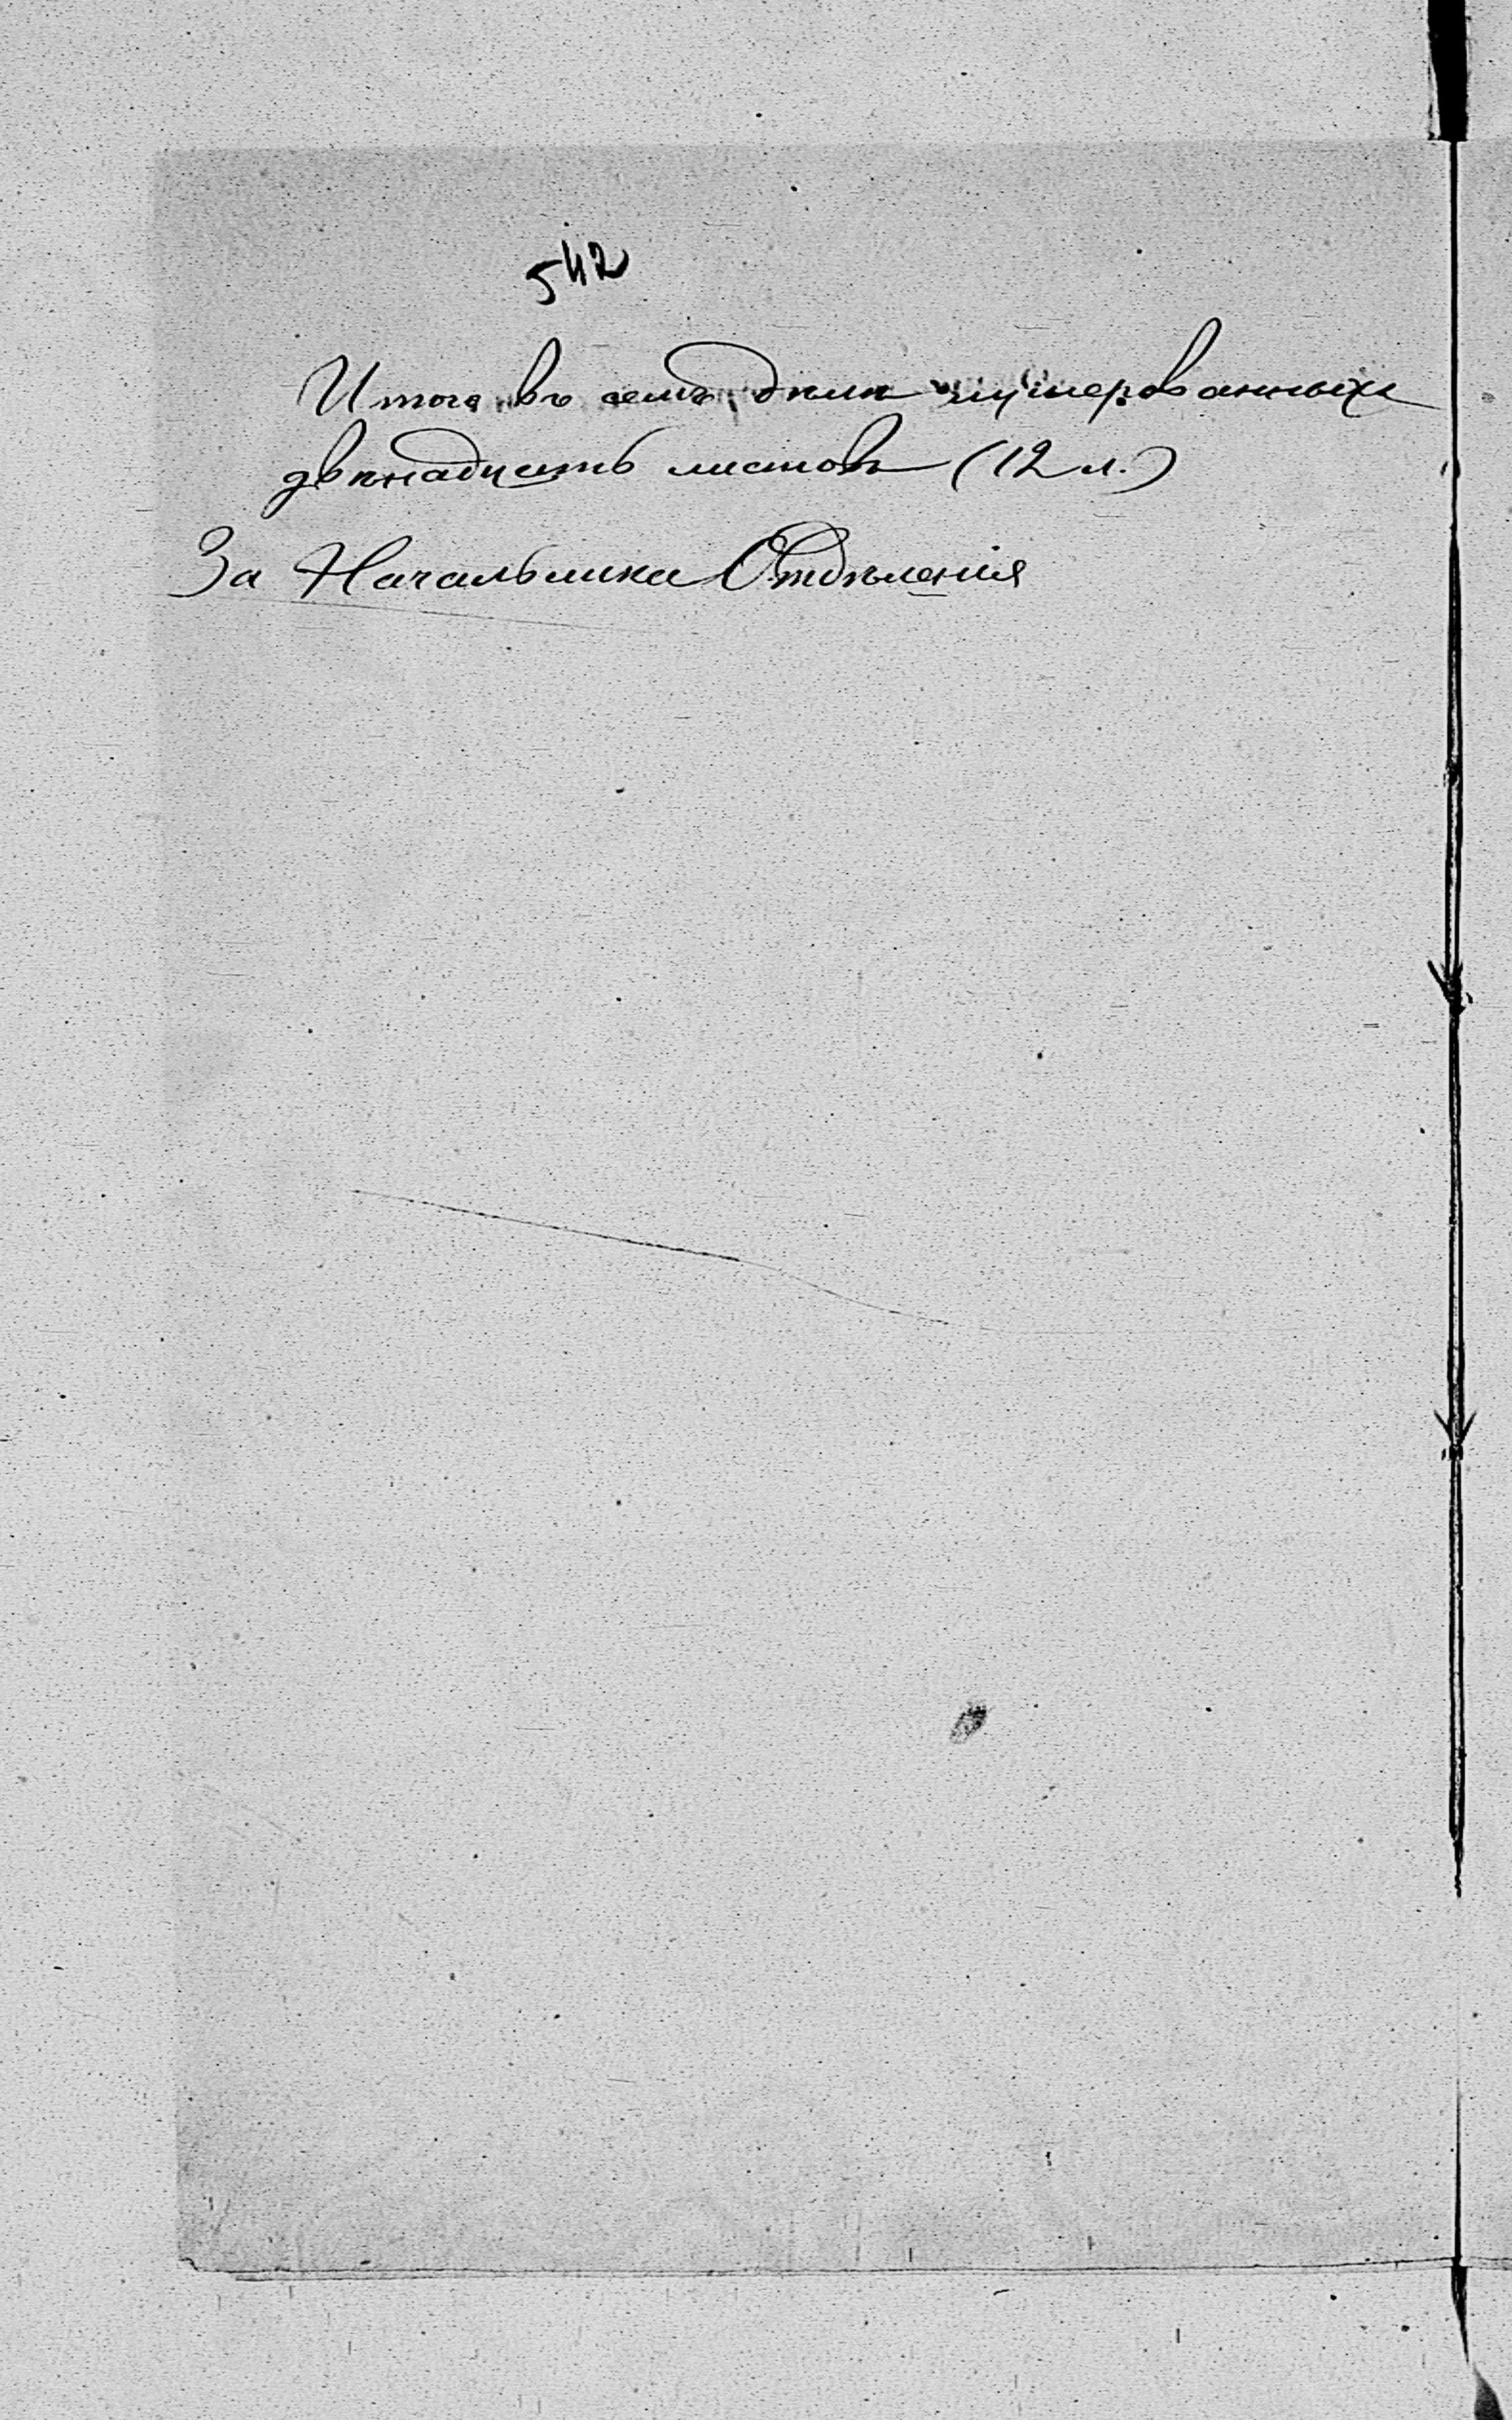 542
Итого въ семъ дѣлѣ нумерованныхъ
двѣнадцать листовъ (12 л.)
За Начальника Отдѣленія